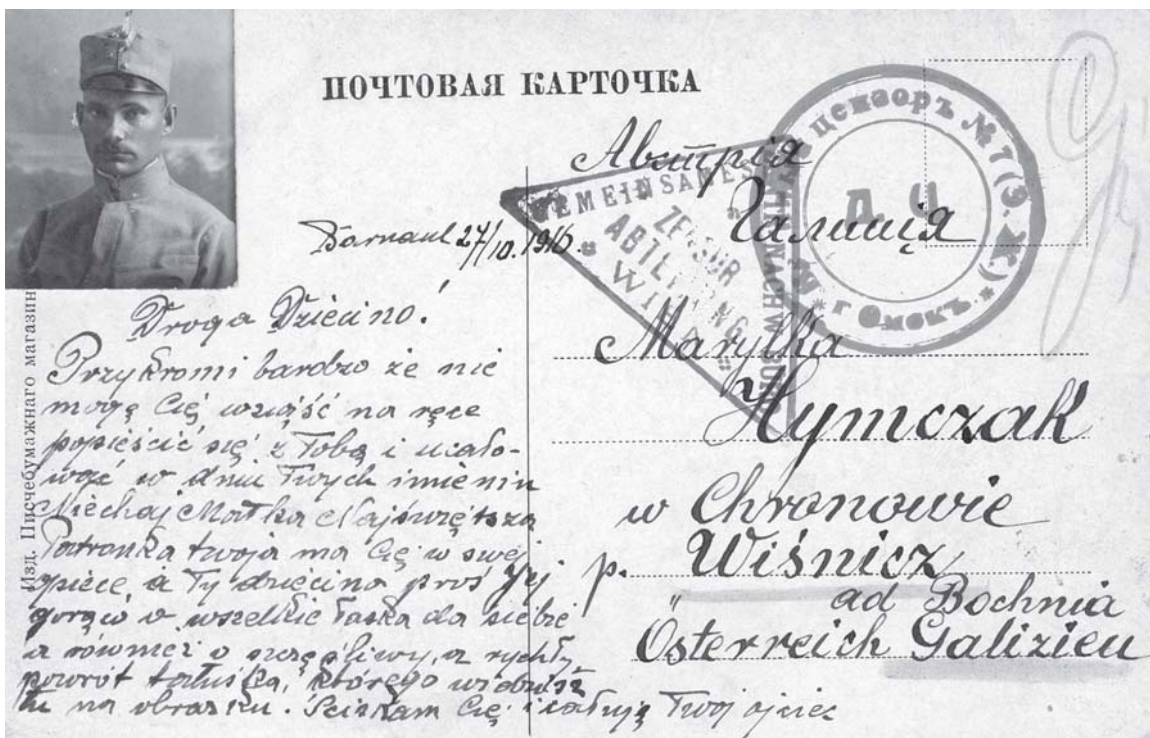 ПОЧТОВАЯ КАРТОЧКА
Изд. Писчебумажнаго магазин
Barnaul 27/10. 1916.
Droga Dziecino!
Przykromi bardzo że nie
mogę Cię wziąść na ręce
popieścić się z Tobą i ucało-
wać w dniu Twych imienin
Niechaj Matka Najświętsza
Patronka twoja ma Cię w swej
opiece, a Ty dziecino proś Jej
gorąco o wszelkie łaska dla siebie
a również o szczęśliwy, a rychły
powrót tatuśka, którego widzisz
tu na obrazku. Sciskam Cię i całuję Twój ojciec
Австрія
Галиція
Marylka
Hymczak
w Chronowie
p. Wiśnicz
" ad Bochnia
Österreich Galizien
GEMEINSAMES
ZENSUR
ABTEILUNG
WIEN
цензоръ № 7 (Э. К.)
Д Ч
г Омскъ